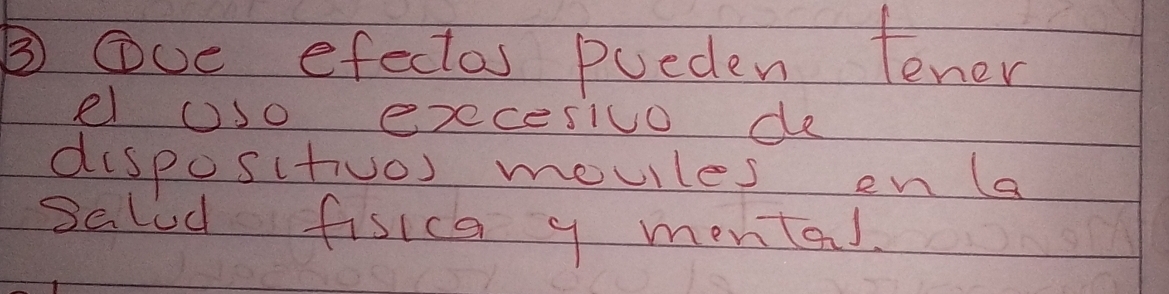 ③ Que efectos pueden tener
el uso excesivo de
dispositivos moviles en la
Salud fisica y mental.